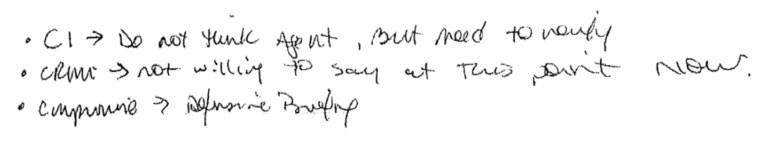 • CI → Do not think Agent, But need to verify
• CRIM → not willing to say at this point NOW.
• Compromise → Defensive Briefing